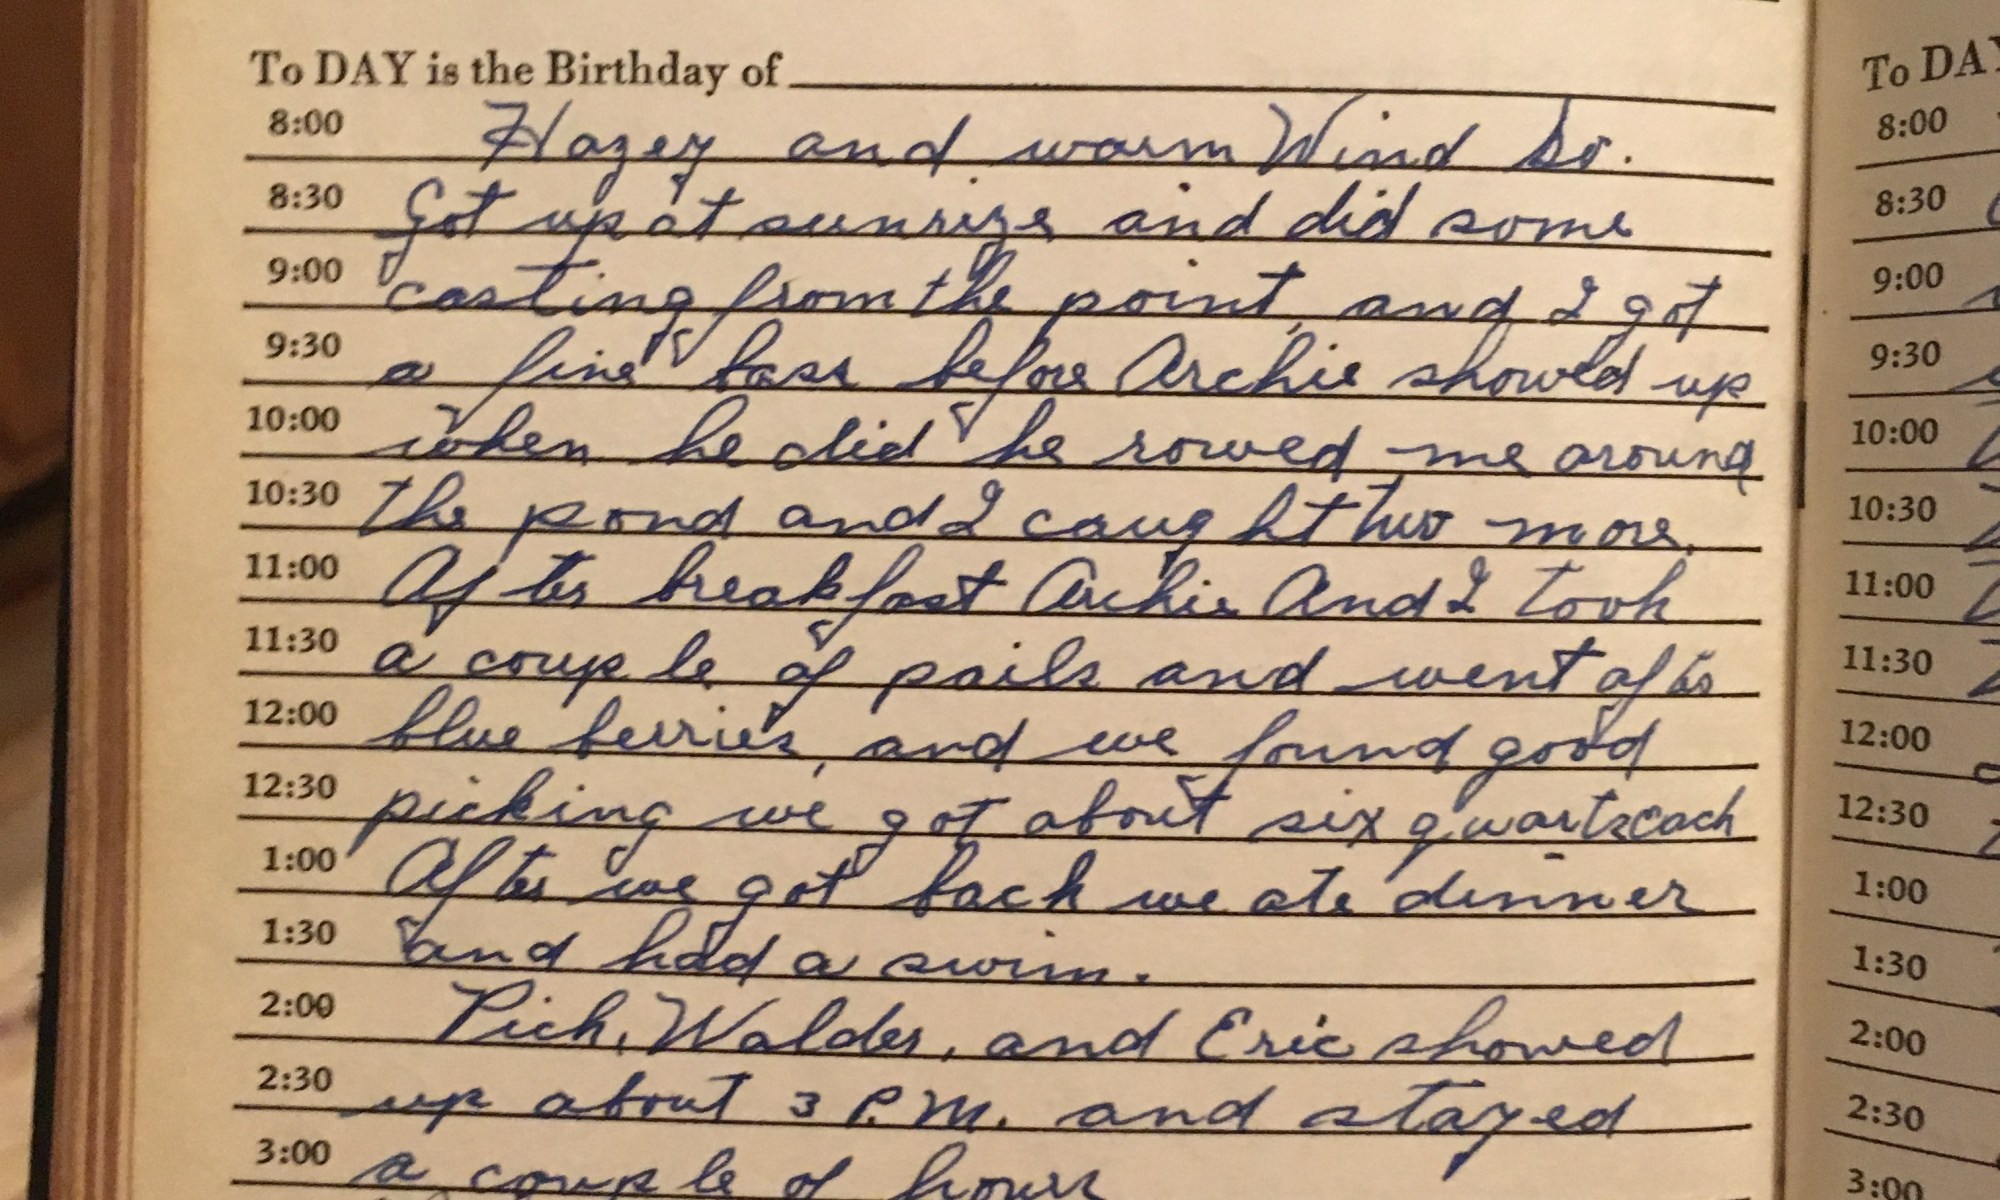 To DAY is the Birthday of
8:00 Hazey and warm Wind So.
8:30 Got up at sunrize and did some
9:00 casting from the point, and I got
9:30 a fine bass before Archie showed up
10:00 when he did he rowed me around
10:30 the pond and I caught two more.
11:00 After breakfast Archie And I took
11:30 a couple of pails and went after
12:00 blue berries, and we found good
12:30 picking we got about six quarts each
1:00 After we got back we ate dinner
1:30 and had a swim.
2:00 Pich, Walder, and Eric showed
2:30 up about 3 P.M. and stayed
3:00 a couple of hours
To DAY
8:00
8:30
9:00
9:30
10:00
10:30
11:00
11:30
12:00
12:30
1:00
1:30
2:00
2:30
3:00